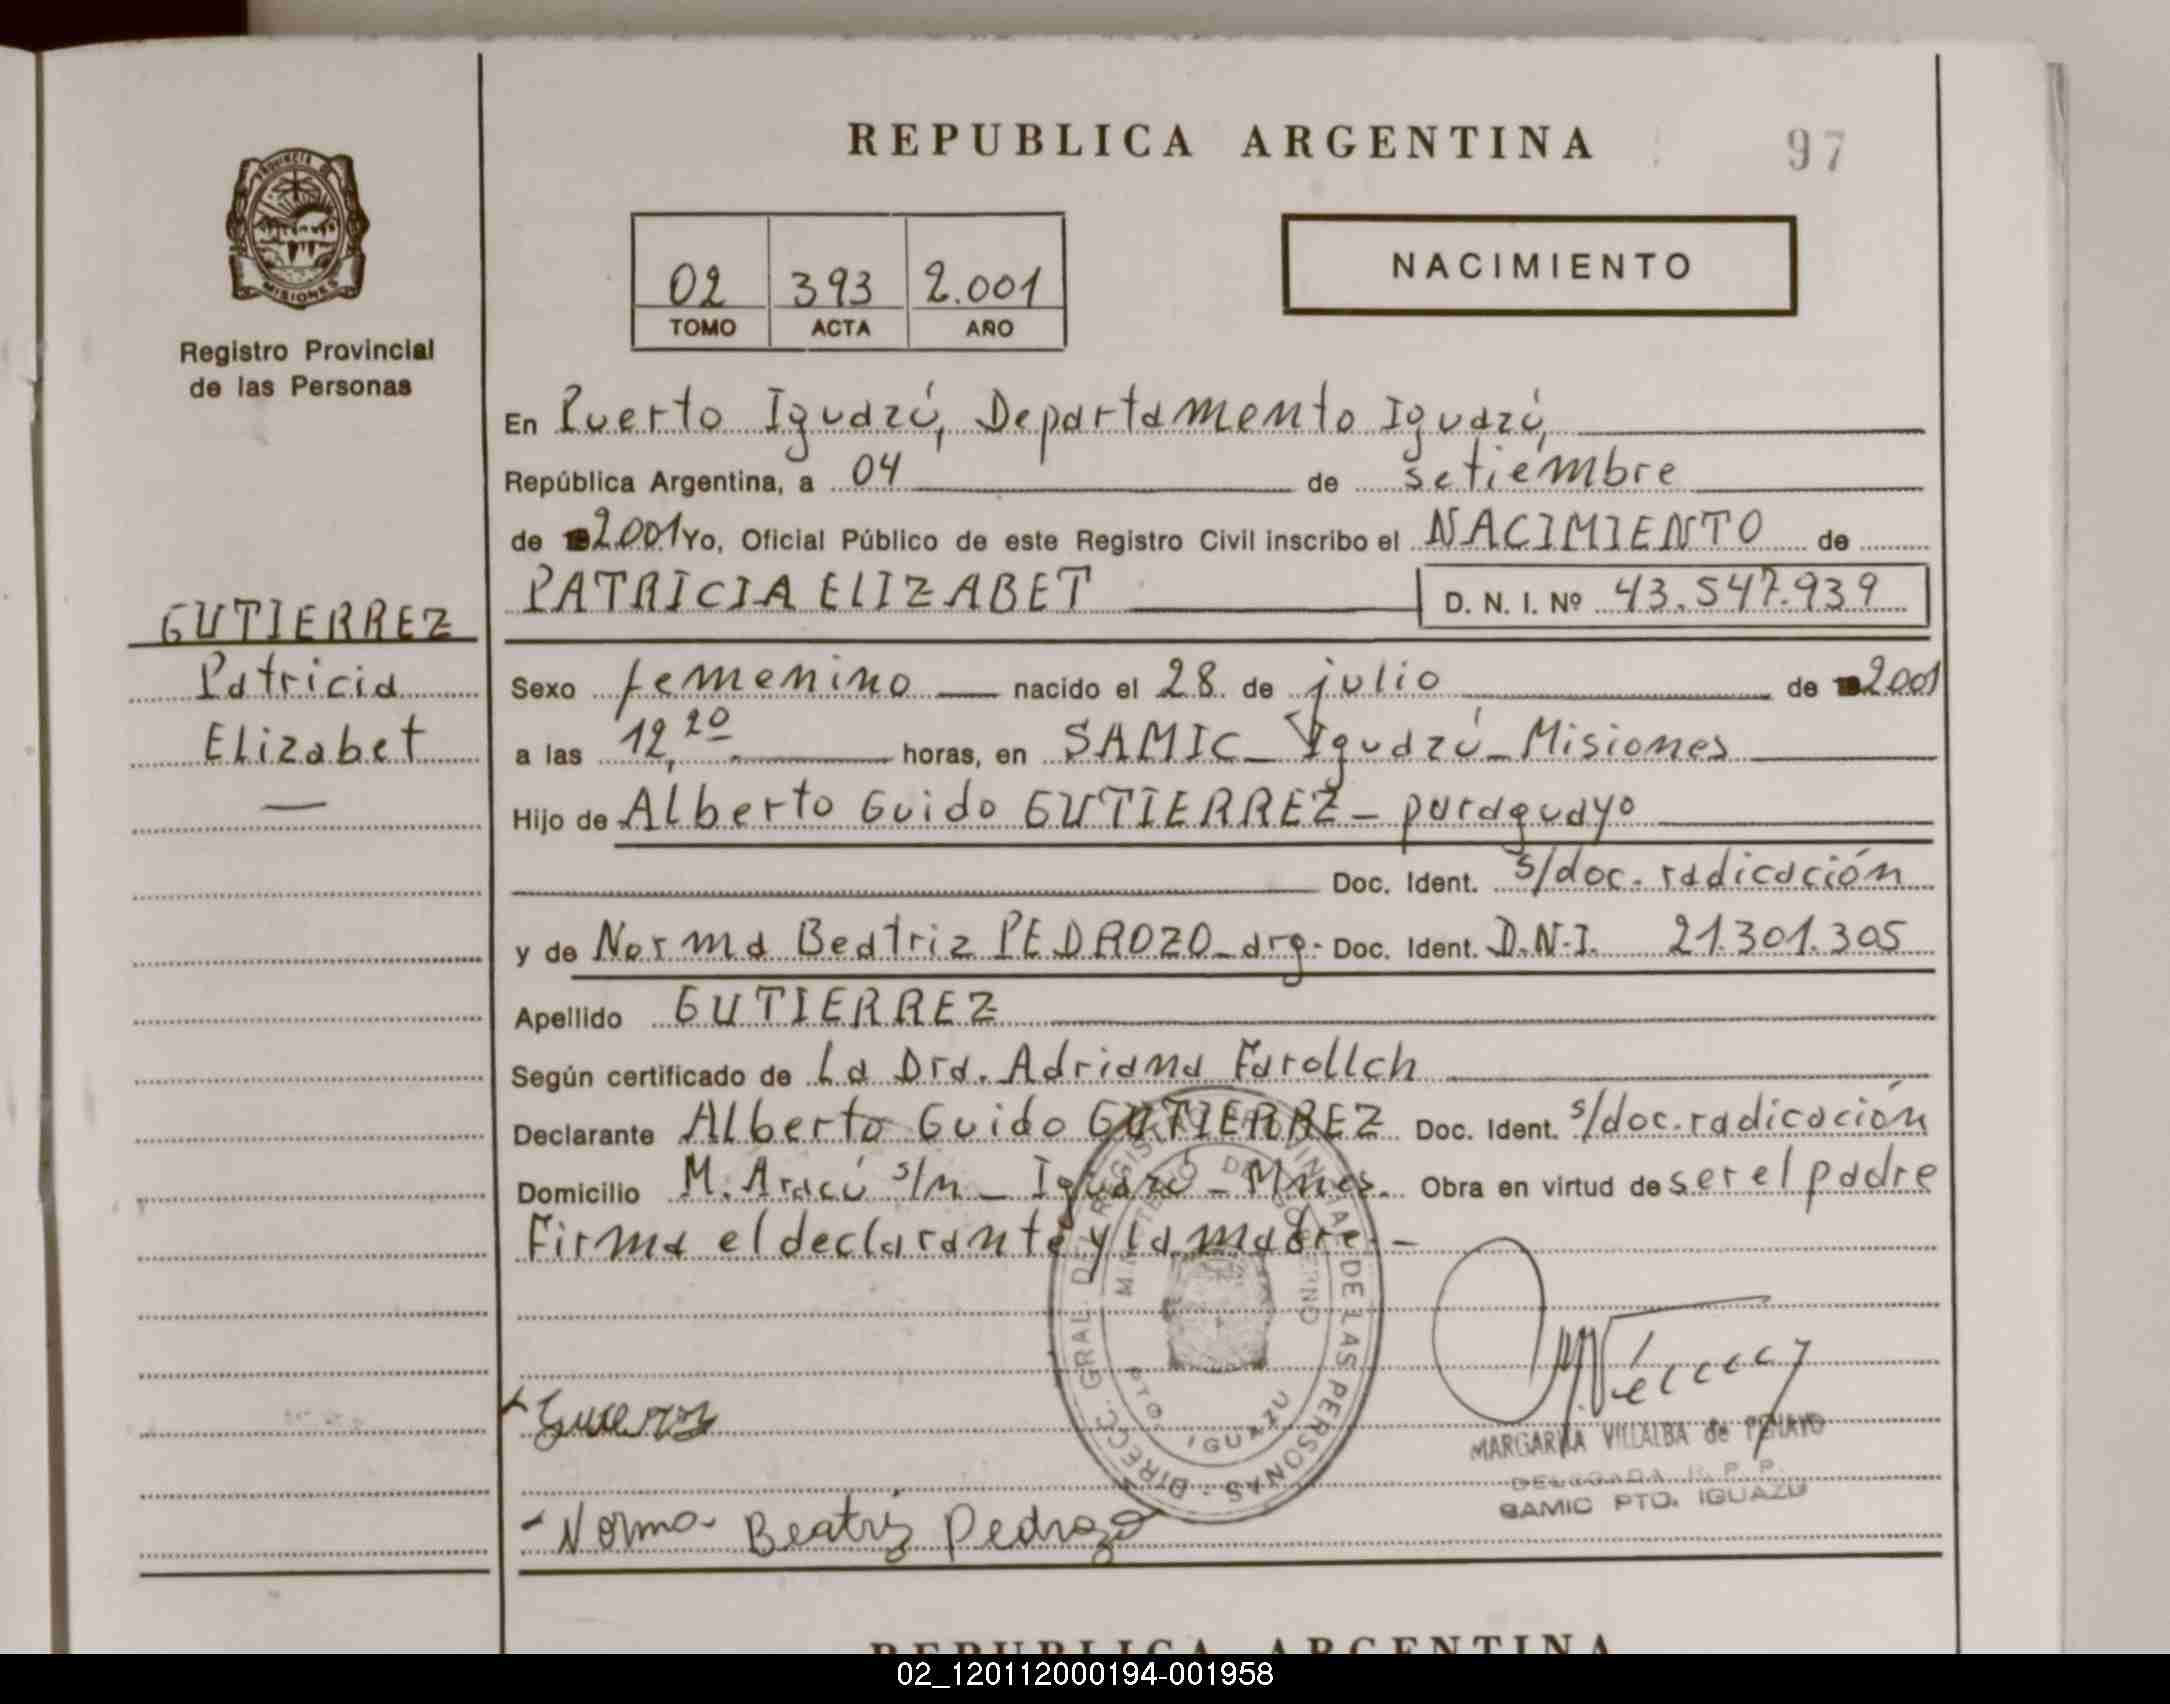 REPUBLICA ARGENTINA
97
PROVINCIA DE
MISIONES
Registro Provincial
de las Personas
02 393 2.001
TOMO ACTA AÑO
NACIMIENTO
En Puerto Iguazú, Departamento Iguazú,
República Argentina, a 04 de setiembre
de 2001 Yo, Oficial Público de este Registro Civil inscribo el NACIMIENTO de
PATRICIA ELIZABET D. N. I. Nº 43.547.939
GUTIERREZ
Patricia
Elizabet
Sexo femenino nacido el 28 de julio de 2001
a las 12,20 horas, en SAMIC - Iguazú - Misiones
Hijo de Alberto Guido GUTIERREZ - paraguayo
Doc. Ident. s/doc. radicación
y de Norma Beatriz PEDROZO - arg. Doc. Ident. D.N.I. 21.301.305
Apellido GUTIERREZ
Según certificado de La Dra. Adriana Farollch
Declarante Alberto Guido GUTIERREZ Doc. Ident. s/doc. radicación
Domicilio M. Aracú s/n - Iguazú - Mnes. Obra en virtud de ser el padre
Firma el declarante y la madre. -
DIRECC. GRAL. DEL REGISTRO PROVINCIAL DE LAS PERSONAS
MINISTERIO DE GOBIERNO
PTO. IGUAZU
MARGARITA VILLALBA de
DELEGADA R. P. P.
SAMIC PTO. IGUAZU
Norma Beatriz Pedrozo
REPUBLICA ARGENTINA
02_120112000194-001958